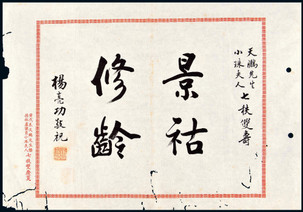 天鵬先生
小珠夫人 七秩雙壽
景祜
修齡
楊亮功敬祝